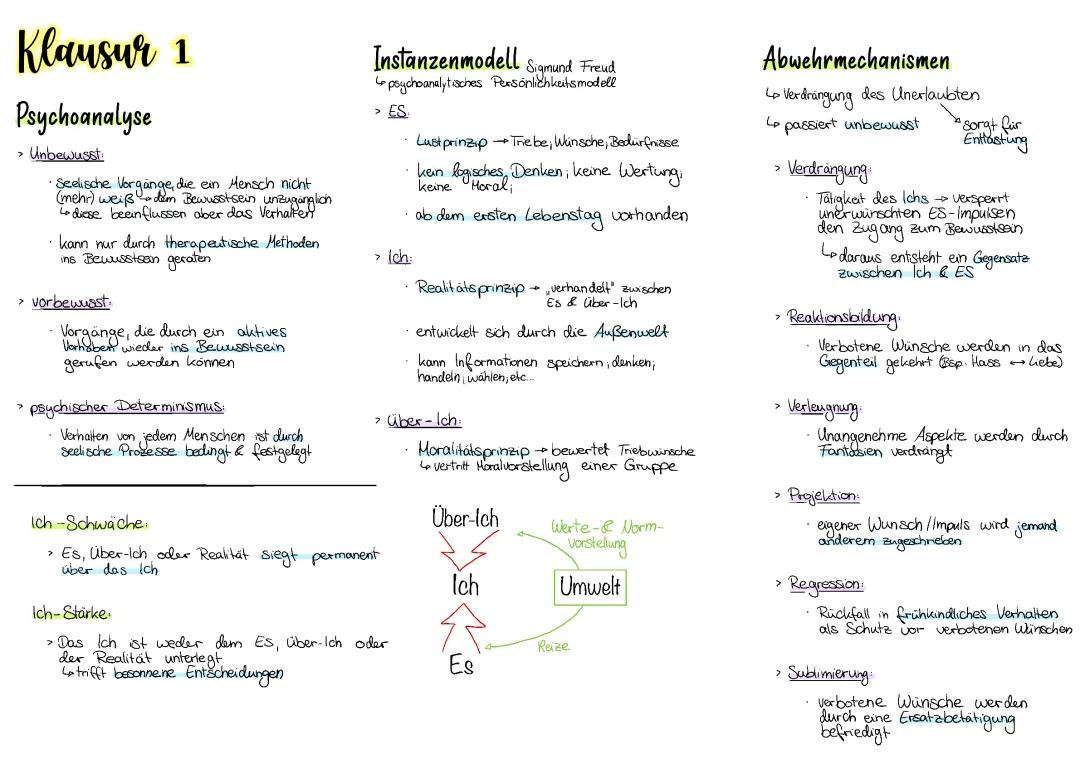 Klausur 1
Psychoanalyse
> Unbewusst:
· Seelische Vorgänge, die ein Mensch nicht
(mehr) weiß → dem Bewusstsein unzugänglich
↳ diese beeinflussen aber das Verhalten
· kann nur durch therapeutische Methoden
ins Bewusstsein geraten
> vorbewusst:
· Vorgänge, die durch ein aktives
Vorhaben wieder ins Bewusstsein
gerufen werden können
> psychischer Determinismus:
· Verhalten von jedem Menschen ist durch
seelische Prozesse bedingt & festgelegt
Ich-Schwäche:
> Es, Über-Ich oder Realität siegt permanent
über das Ich
Ich-Stärke:
> Das Ich ist weder dem Es, Über-Ich oder
der Realität unterlegt
↳ trifft besonnene Entscheidungen
Instanzenmodell Sigmund Freud
↳ psychoanalytisches Persönlichkeitsmodell
> ES:
· Lustprinzip → Triebe, Wünsche, Bedürfnisse
· kein logisches Denken; keine Wertung;
keine Moral;
· ab dem ersten Lebenstag vorhanden
> Ich:
· Realitätsprinzip → „verhandelt" zwischen
Es & Über-Ich
· entwickelt sich durch die Außenwelt
· kann Informationen speichern; denken;
handeln; wählen; etc...
> Über-Ich:
· Moralitätsprinzip → bewertet Triebwünsche
↳ vertritt Moralvorstellung einer Gruppe
Über-Ich
Werte- & Norm-
vorstellung
Ich
Umwelt
Reize
Es
Abwehrmechanismen
↳ Verdrängung des Unerlaubten
↳ passiert unbewusst
sorgt für
Entlastung
> Verdrängung:
· Tätigkeit des Ichs → versperrt
unerwünschten ES-Impulsen
den Zugang zum Bewusstsein
↳ daraus entsteht ein Gegensatz
zwischen Ich & ES
> Reaktionsbildung:
· Verbotene Wünsche werden in das
Gegenteil gekehrt (Bsp. Hass ↔ Liebe)
> Verleugnung:
· Unangenehme Aspekte werden durch
Fantasien verdrängt
> Projektion:
· eigener Wunsch/Impuls wird jemand
anderem zugeschrieben
> Regression:
· Rückfall in frühkindliches Verhalten
als Schutz vor verbotenen Wünschen
> Sublimierung:
· verbotene Wünsche werden
durch eine Ersatzbetätigung
befriedigt